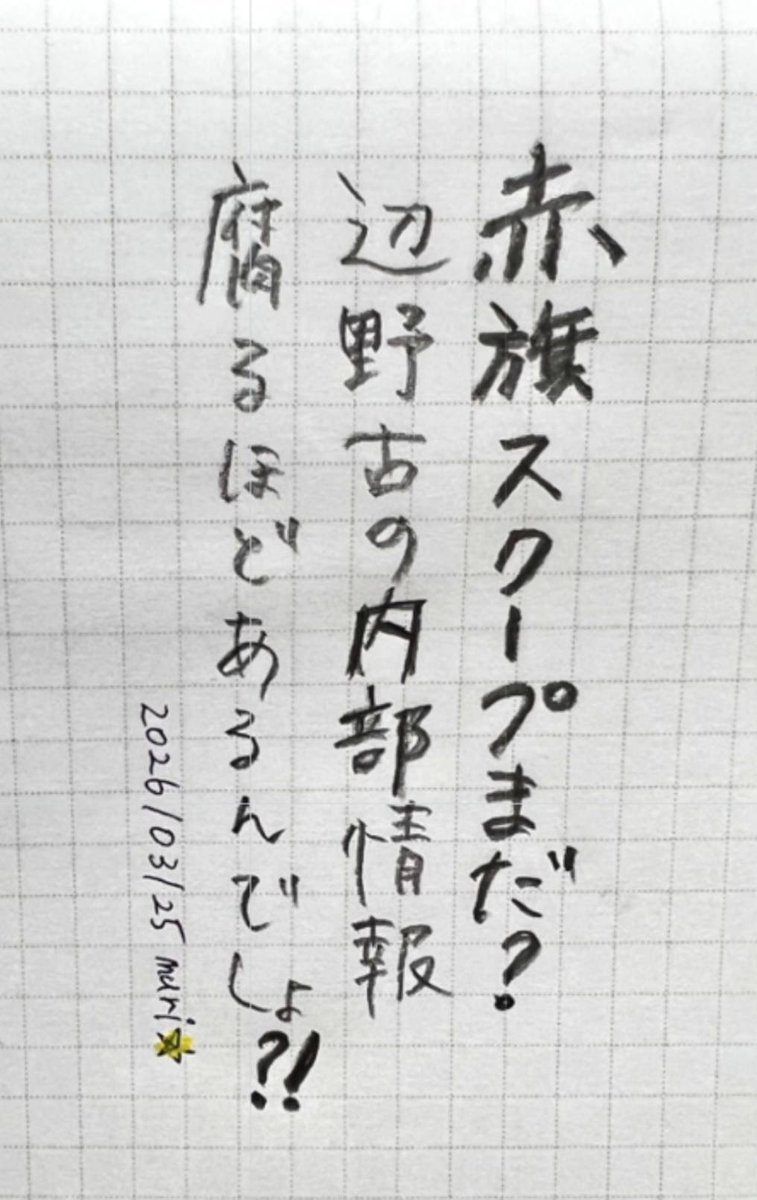 赤旗スクープまだ?
辺野古の内部情報
腐るほどあるんでしょ?!
2026/03/25 mari